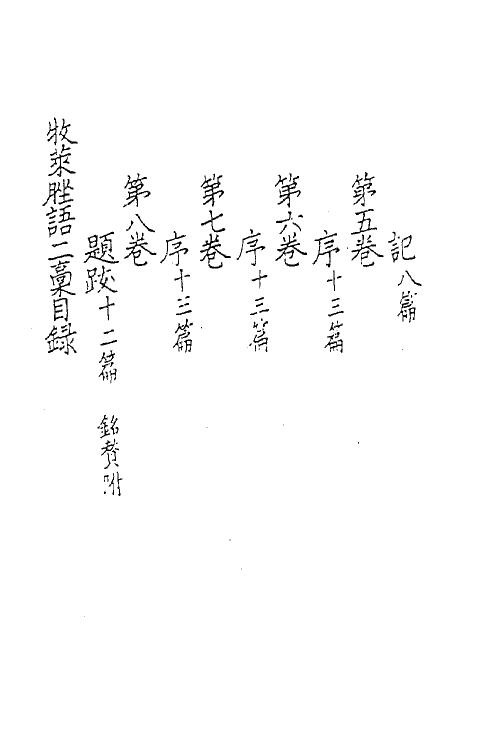 記八篇
第五卷
序十三篇
第六卷
序十三篇
第七卷
序十三篇
第八卷
題跋十二篇　銘贊附
牧萊脞語二稾目録